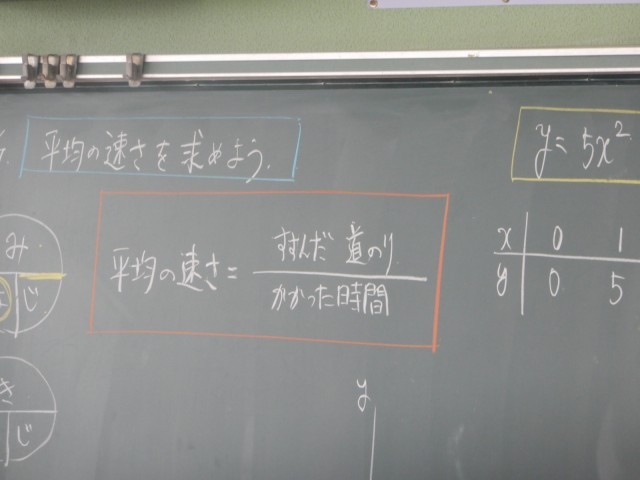 平均の速さを求めよう.
y = 5x²
平均の速さ = すすんだ道のり / かかった時間
x 0 1
y 0 5
み
じ
き
じ
y